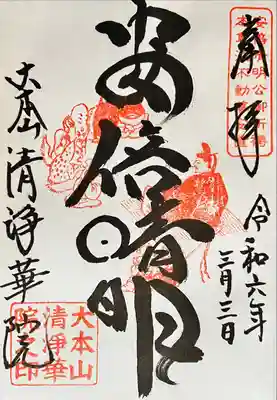 奉拝
令和六年
三月三日
安倍晴明
大本山 清浄華院
大本山
清浄華
院之印